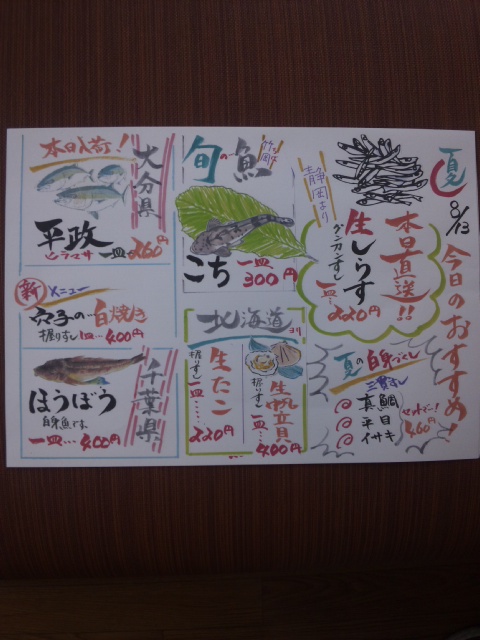 夏
8/13
今日のおすすめ!
静岡より
本日直送!!
生しらす
グンカンずし
一皿…220円
夏の白身づくし
三貫ずし
真鯛
平目
イサキ
セットで…!
460円
旬の魚
こち
一皿…
300円
北海道
より
生帆立貝
握りずし
一皿…
400円
生たこ
握りずし
一皿……
220円
本日入荷!
大分県
平政
ヒラマサ
一皿…260円
新
メニュー
穴子の…白焼き
握りずし1皿…400円
千葉県
ほうぼう
白身魚です。
一皿…400円